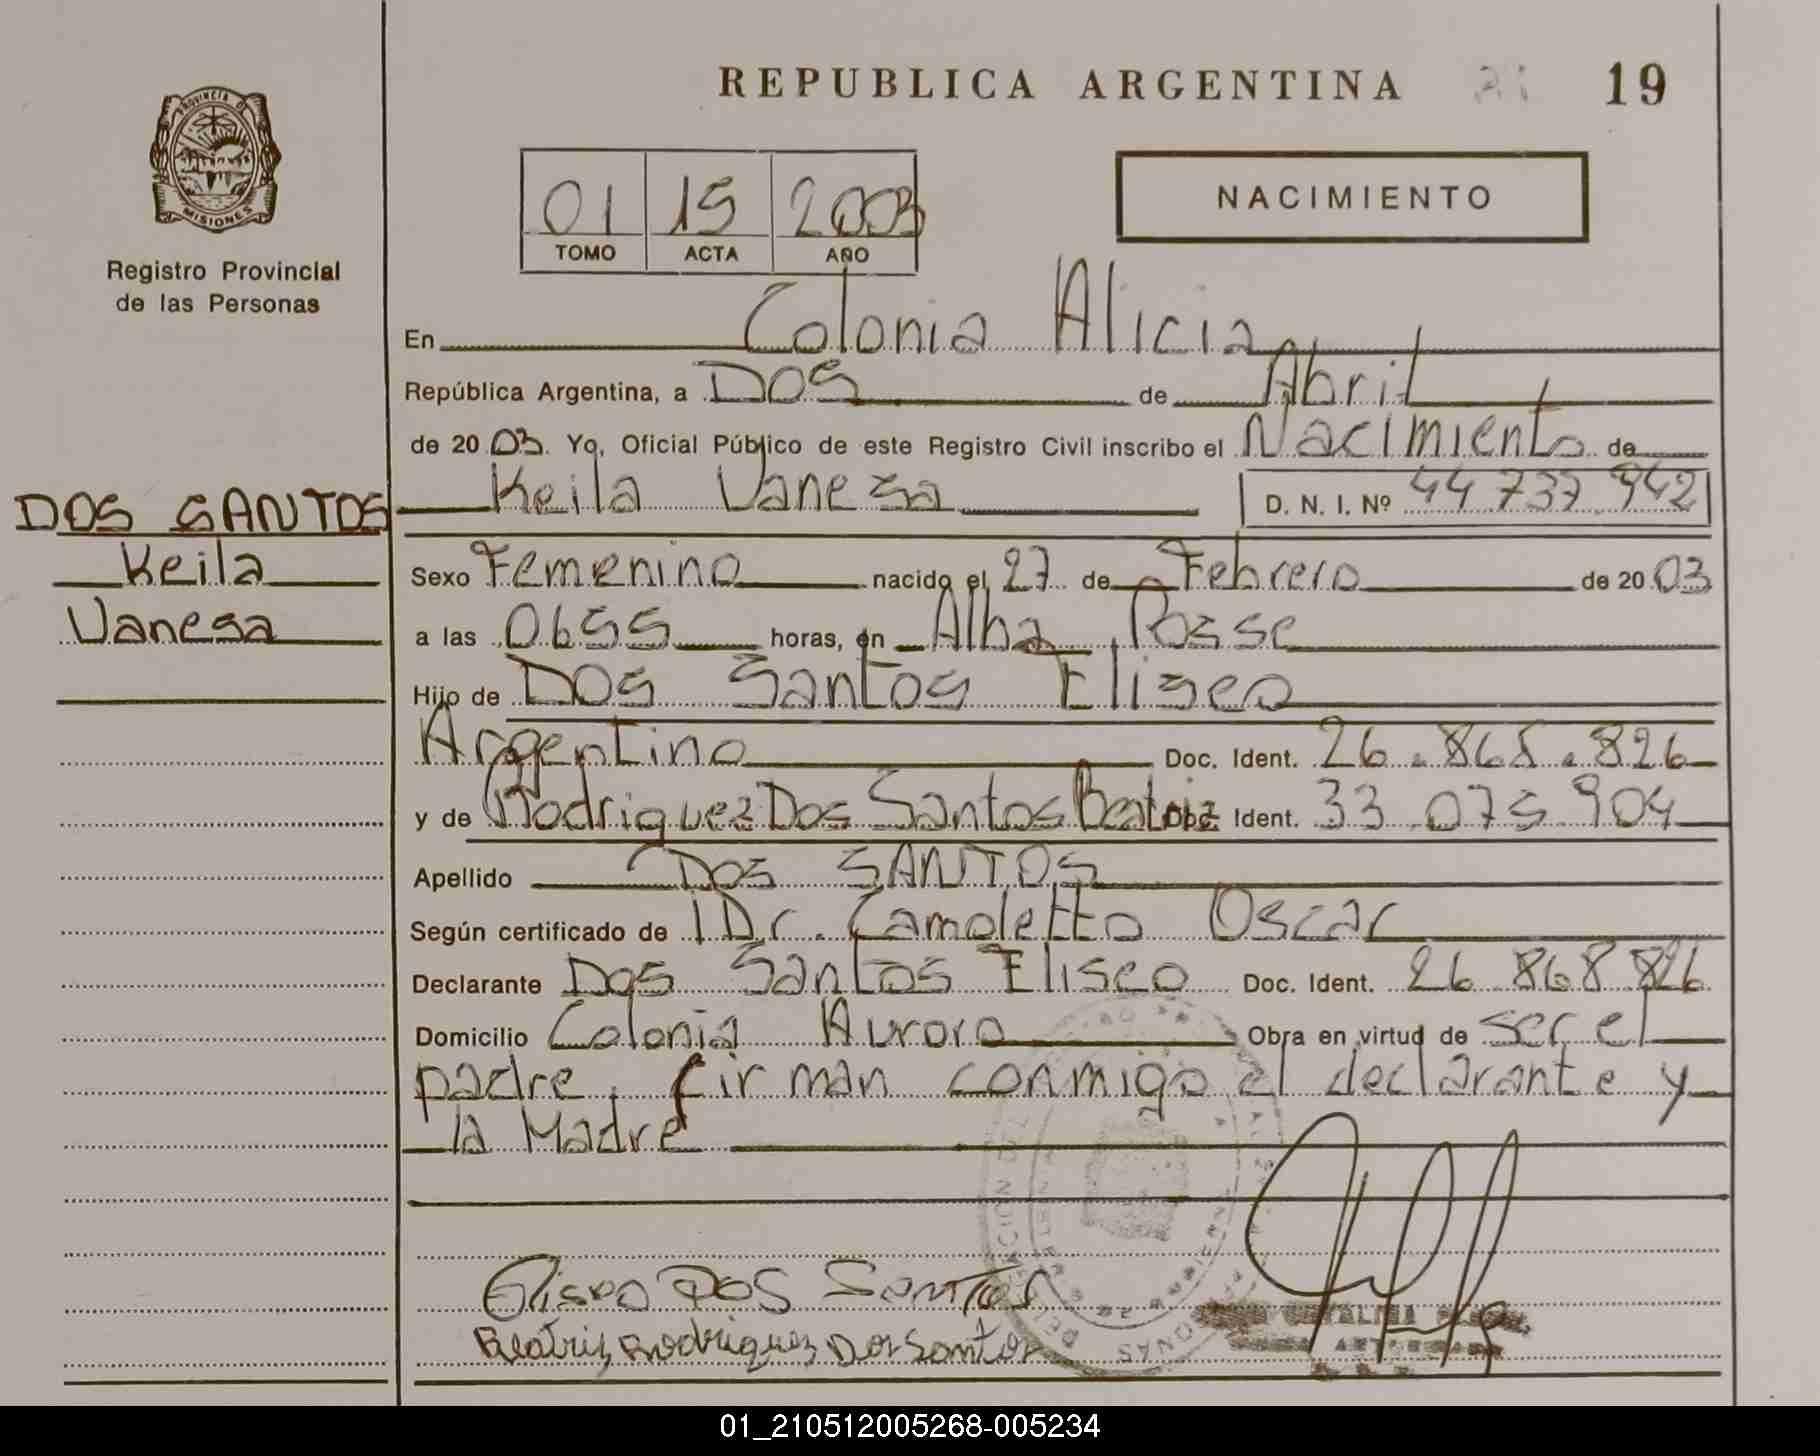 REPUBLICA ARGENTINA 19
PROVINCIA D
MISIONES
Registro Provincial
de las Personas
01 15 2003
TOMO ACTA AÑO
NACIMIENTO
En Colonia Alicia
República Argentina, a Dos de Abril
de 20 03. Yo, Oficial Público de este Registro Civil inscribo el Nacimiento de
Keila Vanesa D. N. I. Nº 44 737 942
DOS SANTOS
Keila
Vanesa
Sexo Femenino nacido el 27 de Febrero de 20 03
a las 0655 horas, en Alba Posse
Hijo de Dos Santos Eliseo
Argentino Doc. Ident. 26.868.826
y de Rodriguez Dos Santos Beatriz Doc. Ident. 33 075 904
Apellido Dos SANTOS
Según certificado de Dr. Camoletto Oscar
Declarante Dos Santos Eliseo Doc. Ident. 26 868 826
Domicilio Colonia Aurora Obra en virtud de ser el
padre. firman conmigo el declarante y
la Madre
Eliseo DOS Santos
Beatriz Rodriguez Dos Santos
01_210512005268-005234